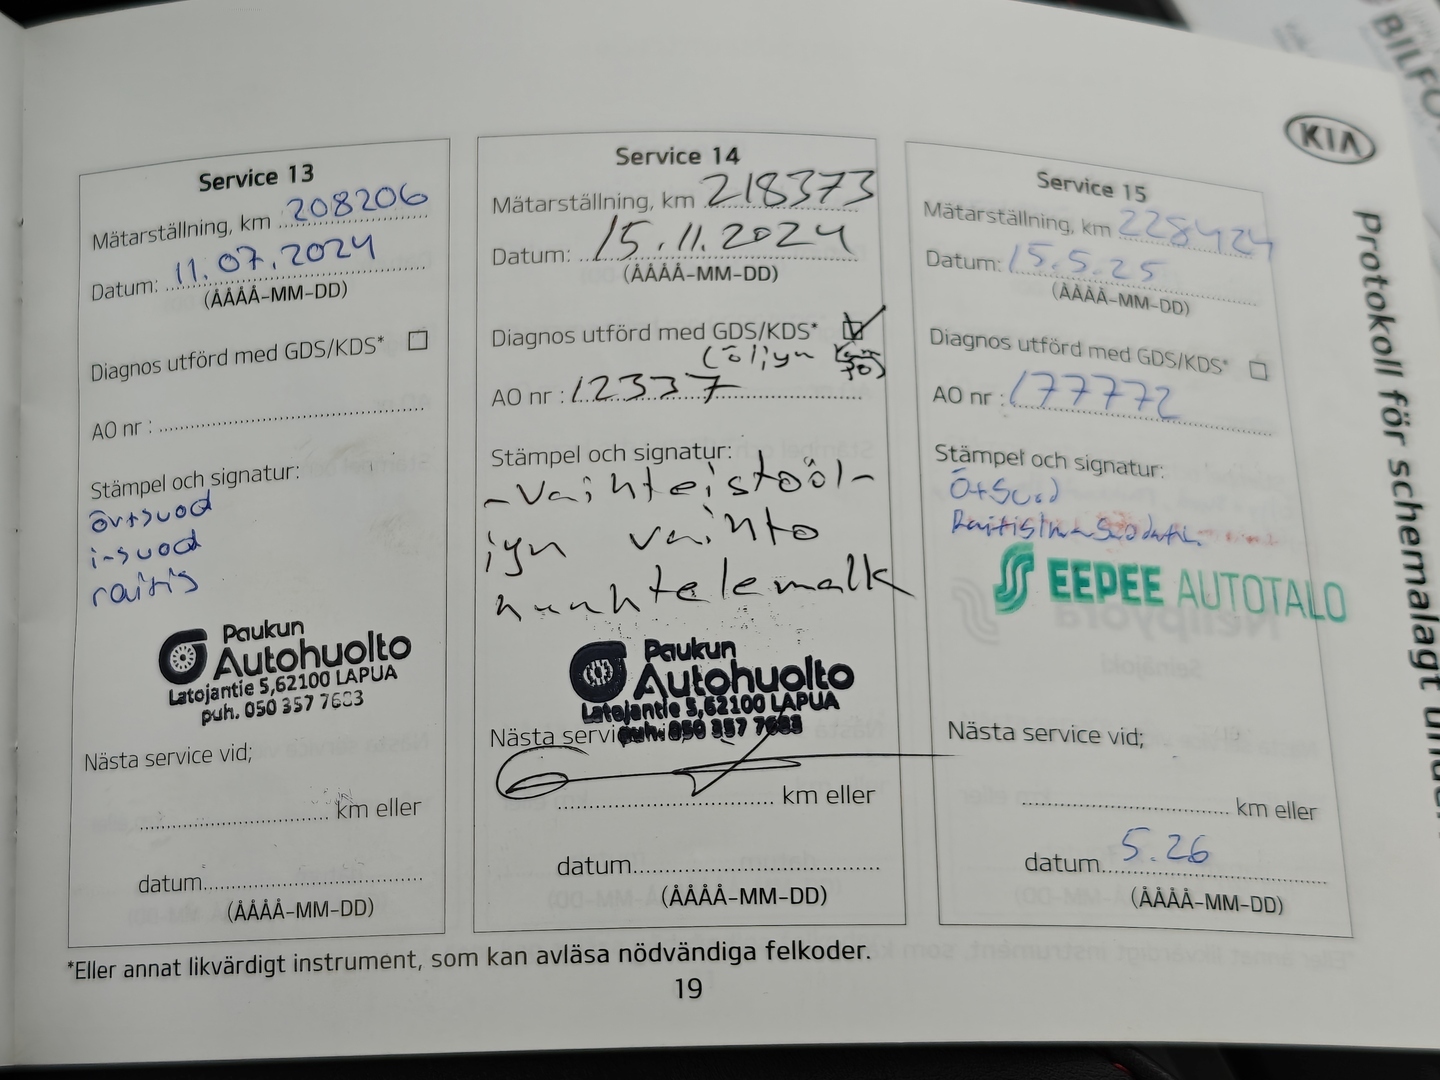 Service 13
Mätarställning, km 208206
Datum: 11.07.2024
(ÅÅÅÅ-MM-DD)
Diagnos utförd med GDS/KDS*
AO nr :
Stämpel och signatur:
ö+suod
i-suod
raitis
Paukun
Autohuolto
Latojantie 5,62100 LAPUA
puh. 050 357 7683
Nästa service vid;
km eller
datum
(ÅÅÅÅ-MM-DD)
Service 14
Mätarställning, km 218373
Datum: 15.11.2024
(ÅÅÅÅ-MM-DD)
Diagnos utförd med GDS/KDS*
(öljyn
AO nr : 12337
Stämpel och signatur:
-vaihteistoöl-
jyn vaihto
huuhtelemalla
Paukun
Autohuolto
Latojantie 5,62100 LAPUA
puh. 050 357 7683
Nästa service
km eller
datum
(ÅÅÅÅ-MM-DD)
Service 15
Mätarställning, km 228424
Datum: 15.5.25
(ÅÅÅÅ-MM-DD)
Diagnos utförd med GDS/KDS*
AO nr : 177772
Stämpel och signatur:
Ö+Suod
EEPEE AUTOTALO
Nästa service vid;
km eller
datum 5.26
(ÅÅÅÅ-MM-DD)
*Eller annat likvärdigt instrument, som kan avläsa nödvändiga felkoder.
19
KIA
Protokoll för schemalagt